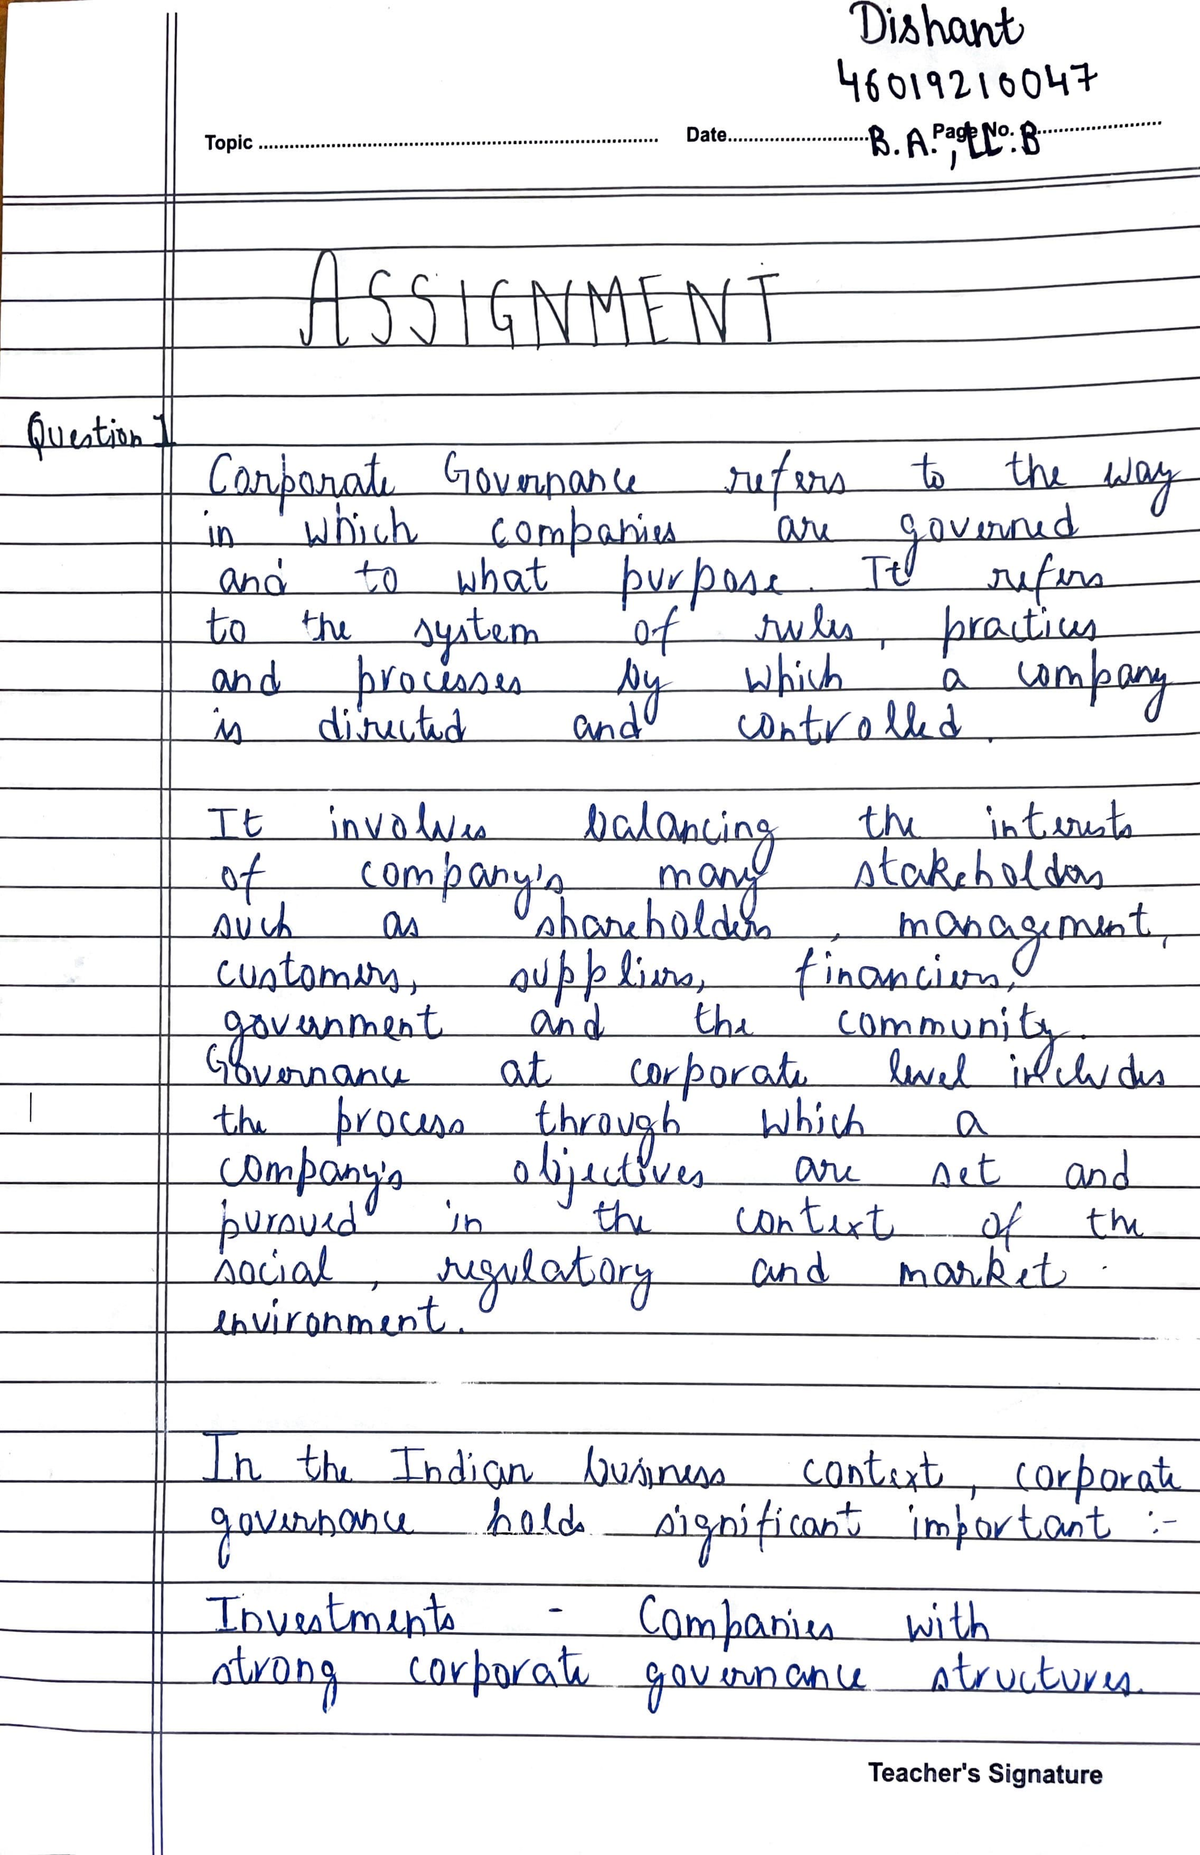 Dishant
46019210047
Topic Date Page No.
B.A., LL.B
ASSIGNMENT
Question 1
Corporate Governance refers to the way
in which companies are governed
and to what purpose. It refers
to the system of rules, practices
and processes by which a company
is directed and controlled.
It involves balancing the interests
of company's many stakeholders
such as shareholders, management,
customers, suppliers, financiers,
government and the community.
Governance at corporate level includes
the process through which a
company's objectives are set and
pursued in the context of the
social, regulatory and market
environment.
In the Indian business context, corporate
governance holds significant important :-
Investments - Companies with
strong corporate governance structures
Teacher's Signature